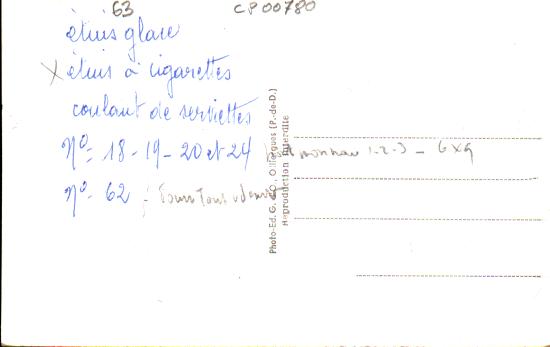 63 CP00780
étuis glace
X étuis à cigarettes
coulant de serviettes
Nº= 18-19-20 et 24
1-2-3 - 6x9
nº- 62
Photo-Ed. G. d'O., Olliergues (P.-de-D.)
Reproduction interdite